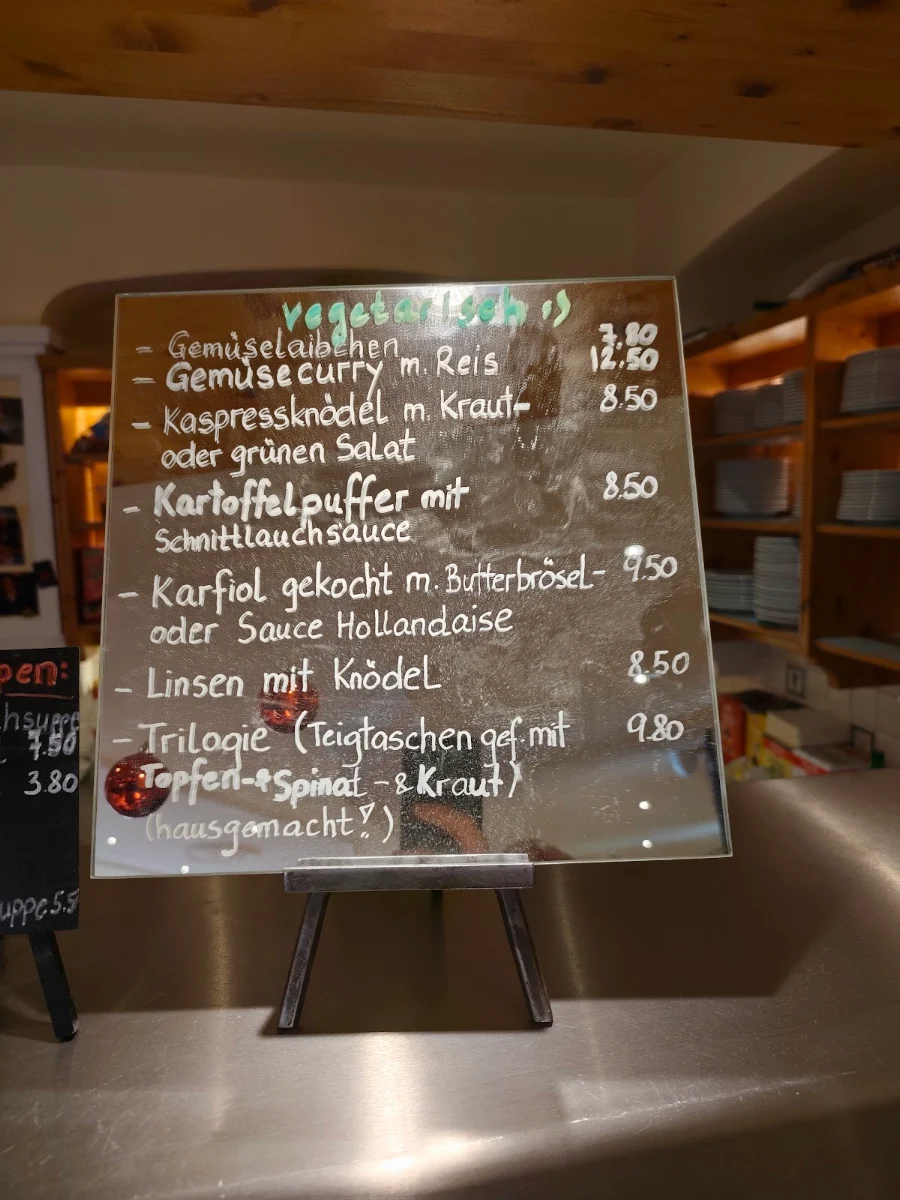 vegetarisch :)
- Gemüselaibchen 7.80
- Gemüsecurry m. Reis 12.50
- Kaspressknödel m. Kraut- 8.50
oder grünen Salat
- Kartoffelpuffer mit 8.50
Schnittlauchsauce
- Karfiol gekocht m. Butterbrösel- 9.50
oder Sauce Hollandaise
- Linsen mit Knödel 8.50
- Trilogie (Teigtaschen gef. mit 9.80
Topfen-&Spinat-&Kraut)
(hausgemacht!)
pen:
hsuppe
7.50
3.80
uppe 5.5